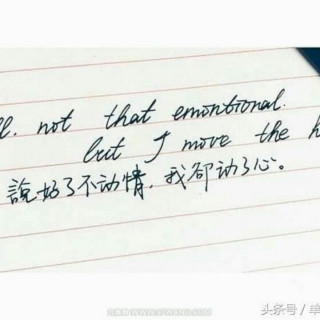 ll, not that emontional.
but I move the h
說好了不动情，我却动了心。
头条号 / 单